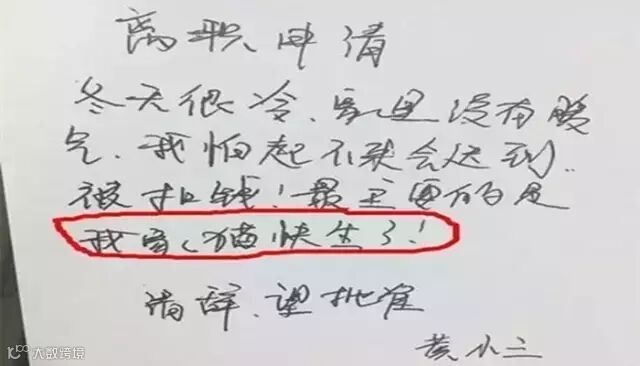 离职申请
冬天很冷、家里没有暖
气、我怕起不来会迟到、
被扣钱！最主要的是
我家猫快生了！
请辞、望批准
黄小三
大数跨境